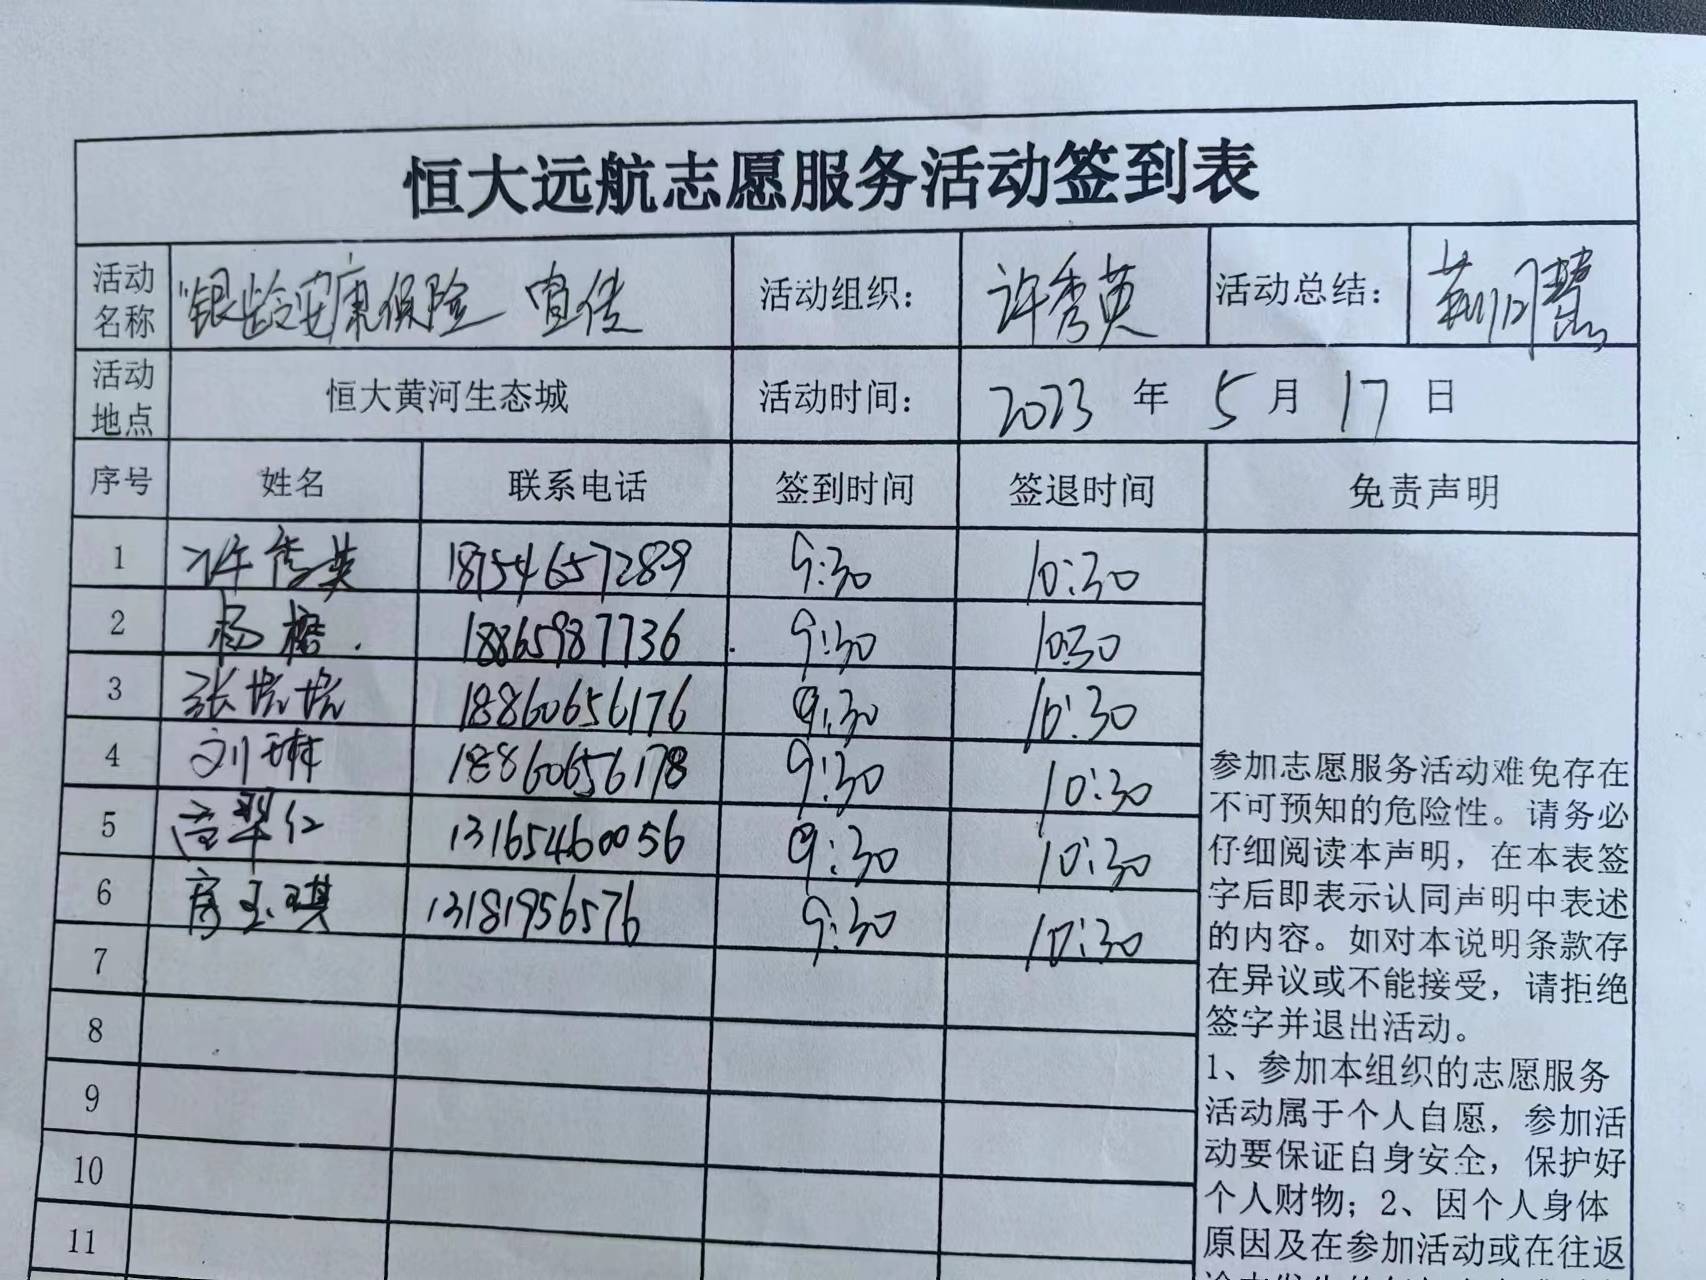 恒大远航志愿服务活动签到表
活动名称 "银龄安康保险 宣传 活动组织： 许秀英 活动总结： 荆月慧
活动地点 恒大黄河生态城 活动时间： 2023 年 5 月 17 日
序号 姓名 联系电话 签到时间 签退时间 免责声明
1 许秀英 18754657289 9:30 10:30
2 杨 18865987736 9:30 10:30
3 张 18860656176 9:30 10:30
4 刘琳 18860656178 9:30 10:30
5 高翠仁 13165460056 9:30 10:30
6 房玉琪 13181956576 9:30 10:30
7
8
9
10
11
参加志愿服务活动难免存在
不可预知的危险性。请务必
仔细阅读本声明，在本表签
字后即表示认同声明中表述
的内容。如对本说明条款存
在异议或不能接受，请拒绝
签字并退出活动。
1、参加本组织的志愿服务
活动属于个人自愿，参加活
动要保证自身安全，保护好
个人财物；2、因个人身体
原因及在参加活动或在往返